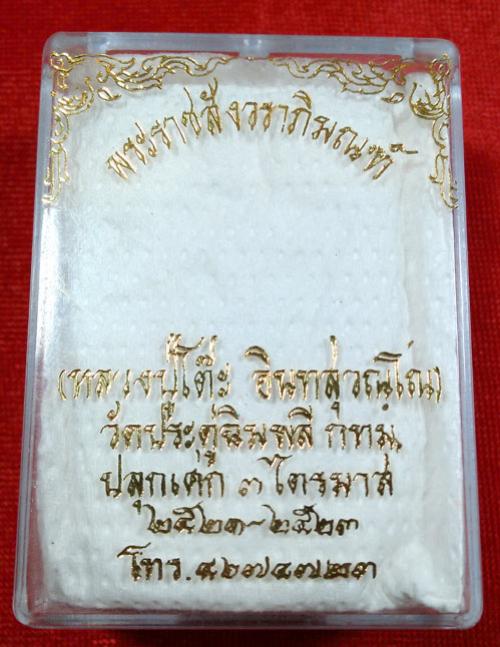 พระราชสังวราภิมณฑ์
(หลวงปู่โต๊ะ อินฺทสุวณฺโณ)
วัดประดู่ฉิมพลี กทม.
ปลุกเศก ๓ ไตรมาส
๒๕๒๑~๒๕๒๓
โทร. ๔๒๗๔๗๒๓